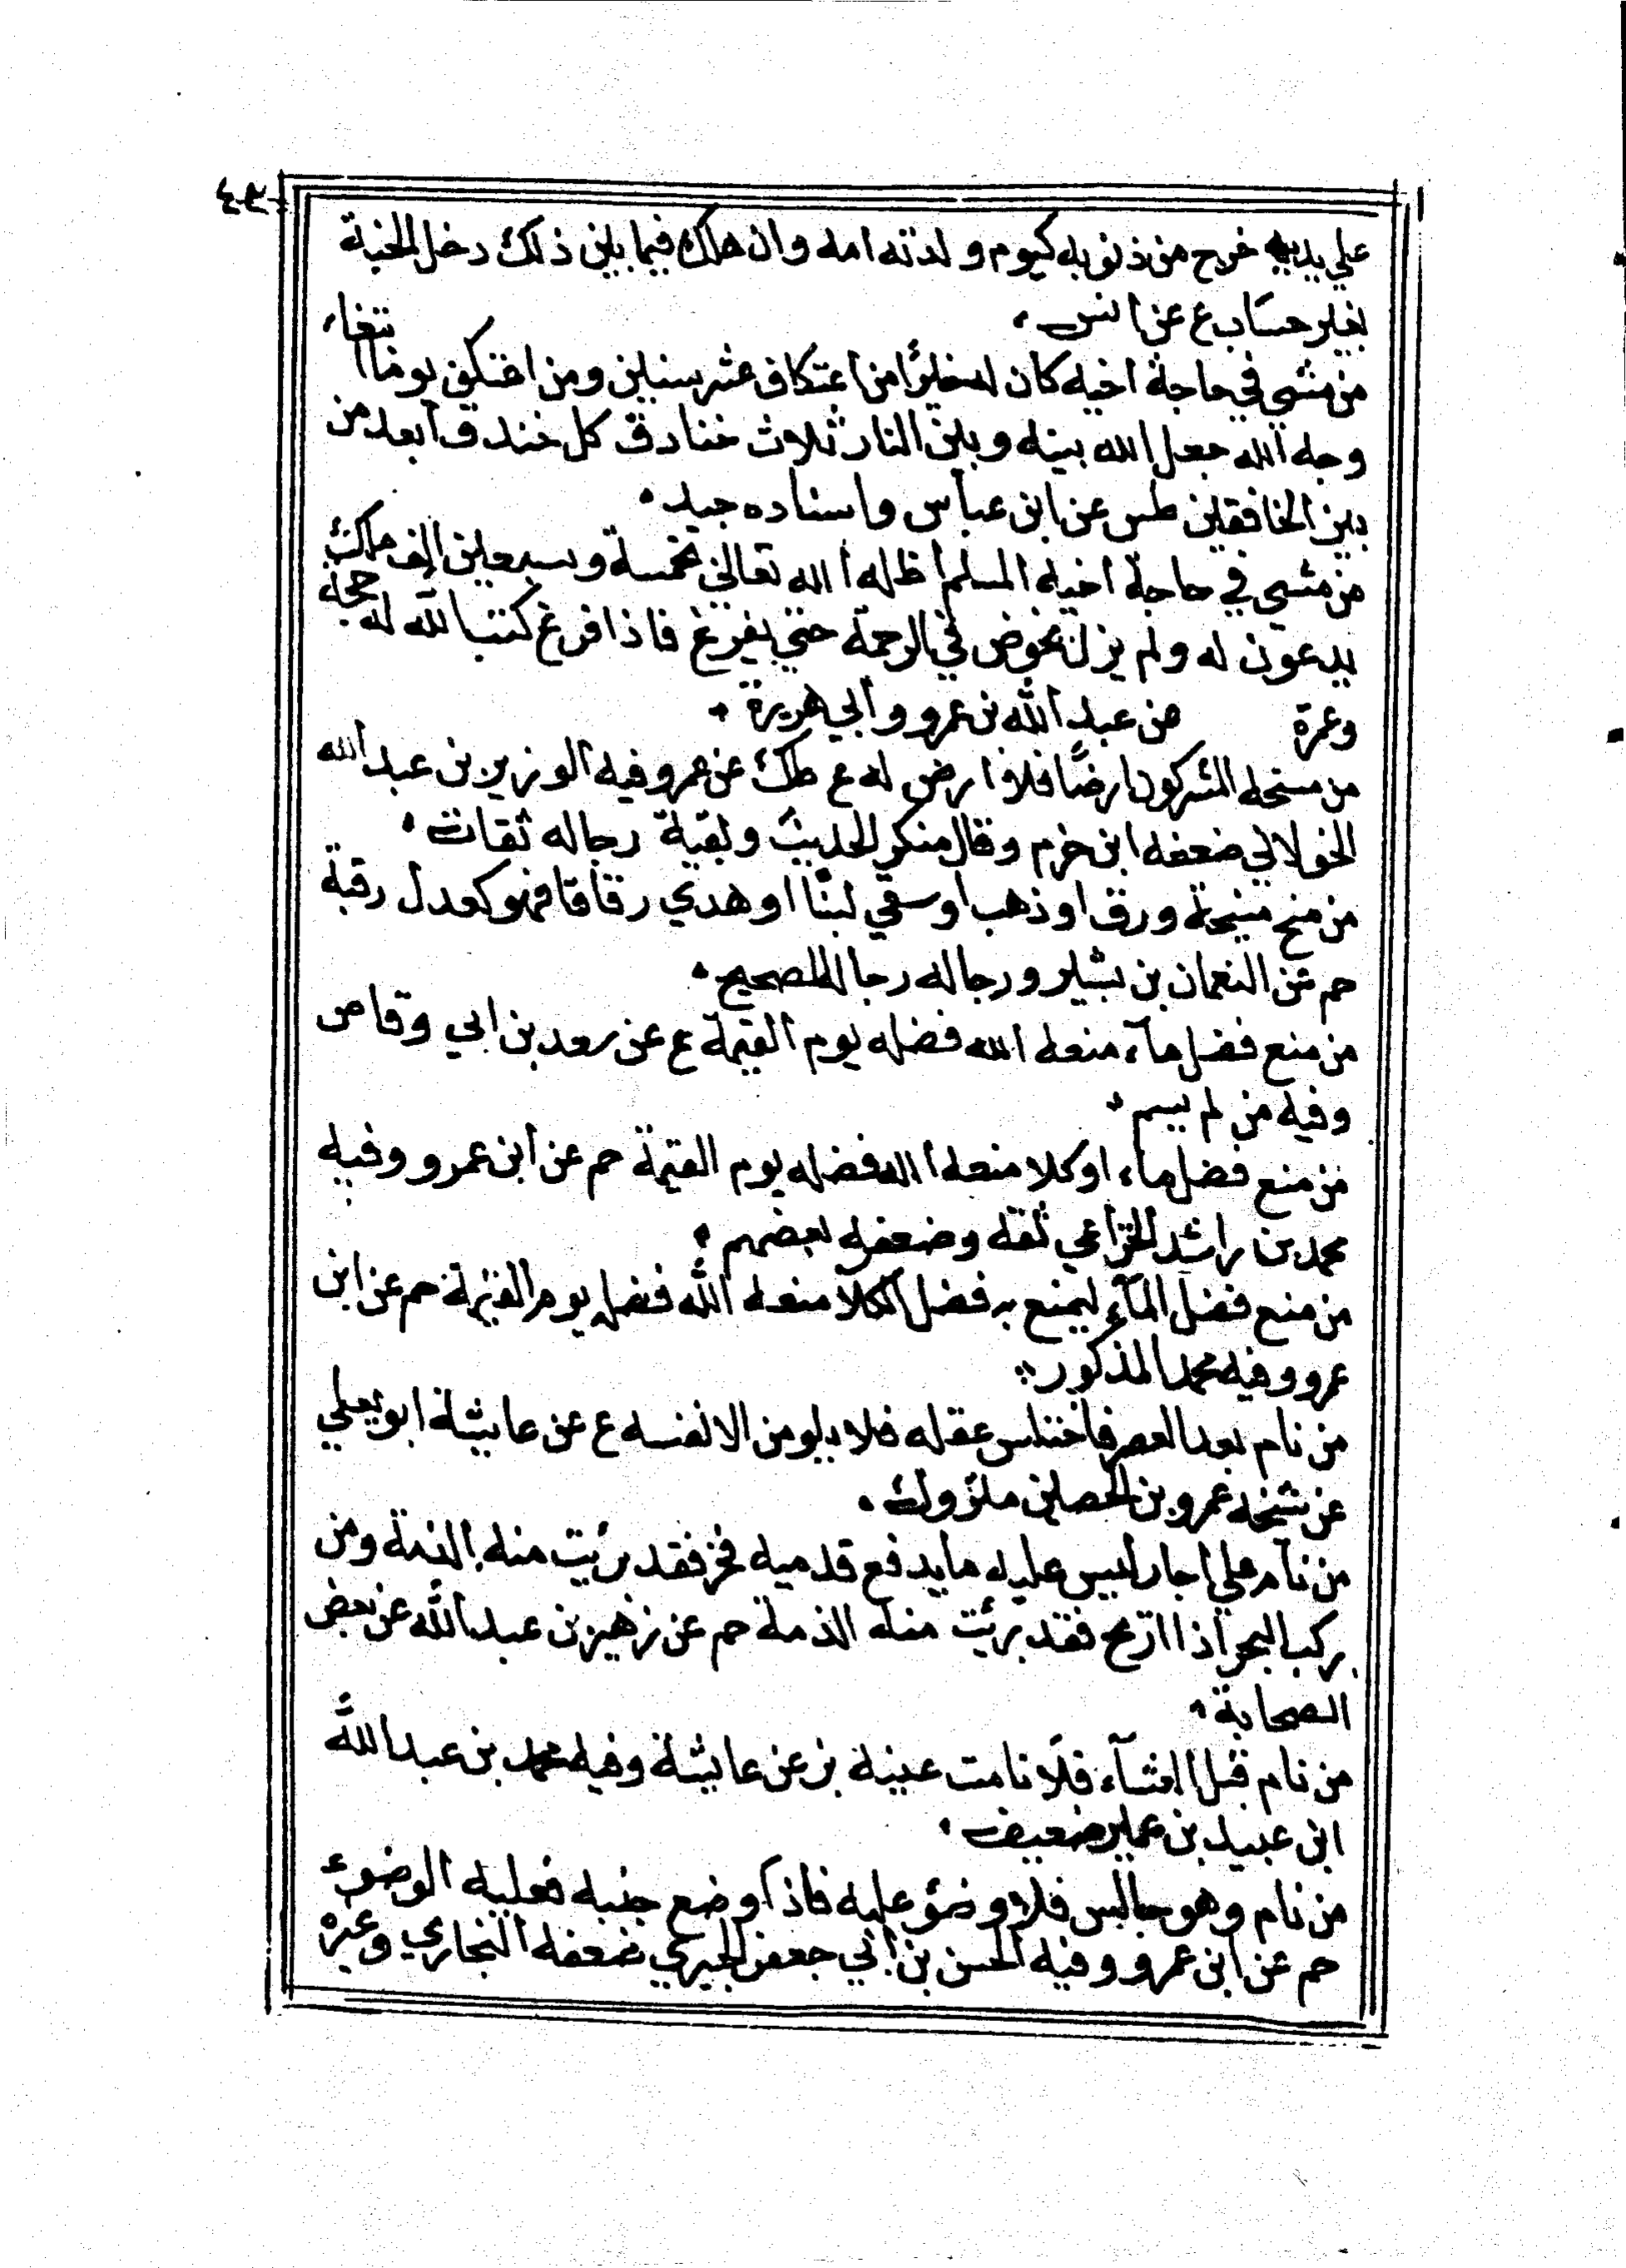 علي يديه خرج من ذنوبه كيوم ولدته امه وان هلك فيما بين ذلك دخل الجنة
بغير حساب ع عن انس
من مشي في حاجة اخيه كان له خيرًا من اعتكاف عشر سنين ومن اعتكف يوما ابتغاء
وجه الله جعل الله بينه وبين النار ثلاث خنادق كل خندق ابعد من
بين الخافقين طس عن ابن عباس واسناده جيد
من مشي في حاجة اخيه المسلم اظله الله تعالي بخمسة وسبعين الف ملك
يدعون له ولم يزل يخوض في الرحمة حتي يفرغ فاذا فرغ كتب الله له حجة
وعمرة عن عبد الله بن عمرو وابي هريرة
من منحه المشركون ارضًا فلا ارض له ع طك عن عمر وفيه الوزير بن عبد الله
الخولاني ضعفه ابن حزم وقال منكر الحديث وبقية رجاله ثقات
من منح منيحة ورق او ذهب او سقي لبنًا او هدي رقاقا فهو كعدل رقبة
حم عن النعمان بن بشير ورجاله رجال الصحيح
من منع فضل مآء منعه الله فضله يوم القيمة ع عن سعد بن ابي وقاص
وفيه من لم يسم
من منع فضل ماء او كلا منعه الله فضله يوم القيمة حم عن ابن عمرو وفيه
محمد بن راشد الخزاعي ثقه وضعفه بعضهم
من منع فضل المآء ليمنع به فضل الكلا منعه الله فضله يوم القيمة حم عن ابن
عمرو وفيه محمد المذكور
من نام بعد العصر فاختلس عقله فلا يلومن الا نفسه ع عن عايشة ابو يعلي
عن شيخه عمرو بن الحصين متروك
من نام علي اجار ليس عليه ما يدفع قدميه فخر فقد برئت منه الذمة ومن
ركب البحر اذا ارتج فقد برئت منه الذمة حم عن زهير بن عبد الله عن بعض
الصحابة
من نام قبل العشآء فلا نامت عينه بز عن عايشة وفيه محمد بن عبد الله
ابن عبيد بن عمير ضعيف
من نام وهو جالس فلا وضؤ عليه فاذا وضع جنبه فعليه الوضوء
حم عن ابن عمرو وفيه الحسن بن ابي جعفر الجفري ضعفه البخاري وغيره